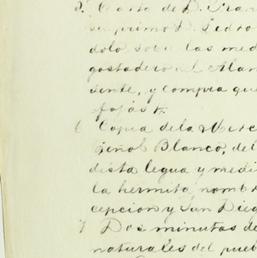 5. Carta de D. Fran
su primo D. Pedro
dolo sobre las med
gostadero el Alam
sente, y compra que
fojas 1.
6 Copia de la Merc
Señol Blanco, del
dista legua y medi
la hermita nombr
cepcion y San Dieg
7 Dos minutas de
naturales del pueb